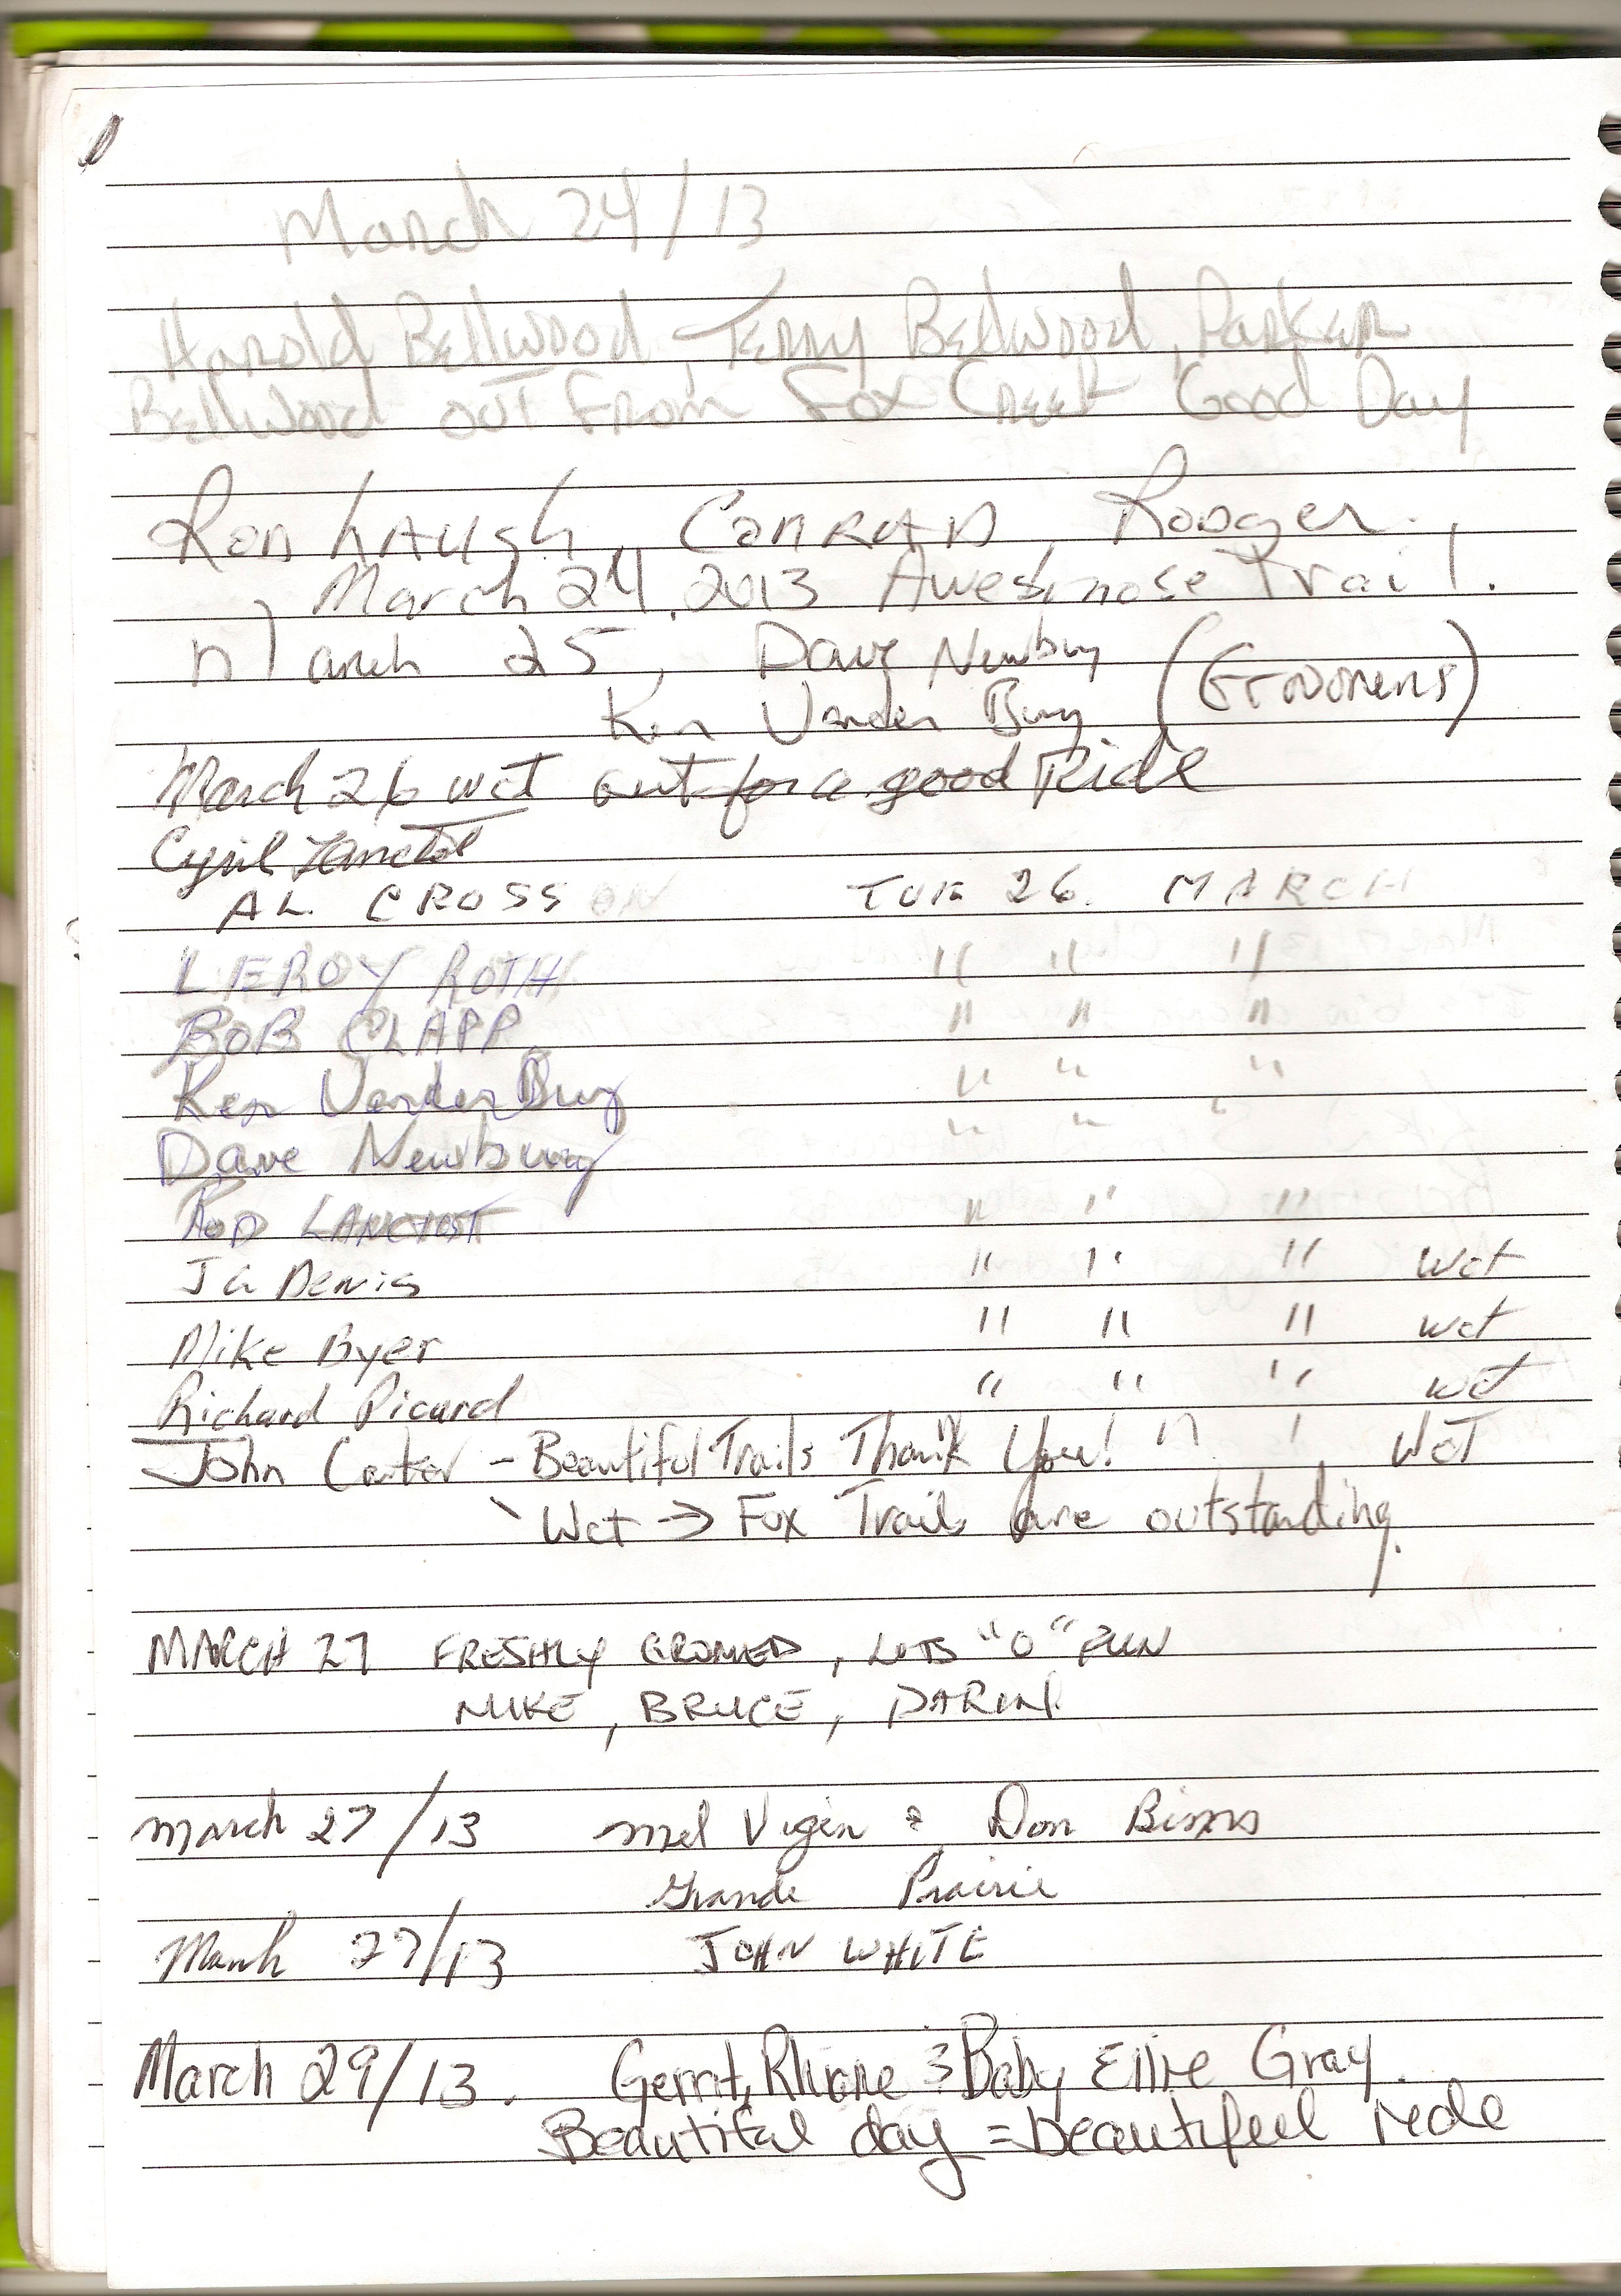 March 24/13
Harold Bellwood, Terry Bellwood, Parker
Bellwood out From Fox Creek Good Day
Ron hAugh, ConRAD, Rodger.
March 24, 2013 Awesome Trail.
March 25, Dave Newbury
Ken Vander Burg
March 26 wct out for a good Ride
Cyril Lanctot
AL CROSS TUE 26. MARCH
LEROY ROTH " " "
BOB CLAPP " " "
Ken Vander Burg " " "
Dave Newbury " " "
ROD LANCTOT " " "
JG Denis " " " Wct
Mike Byer " " " wct
Richard Picard " " " wct
John Carter - Beautiful Trails Thank You! " ! WcT
Wct → Fox Trails are outstanding.
MARCH 27 FRESHLY GROMED, LOTS "O" FUN
MIKE, BRUCE, DARIN
March 27/13 Mel Vigen & Don
Grande Prairie
March 27/13 JOHN WHITE
March 29/13. Gerrit, & Baby Ellie Gray.
Beautiful day = beautiful ride